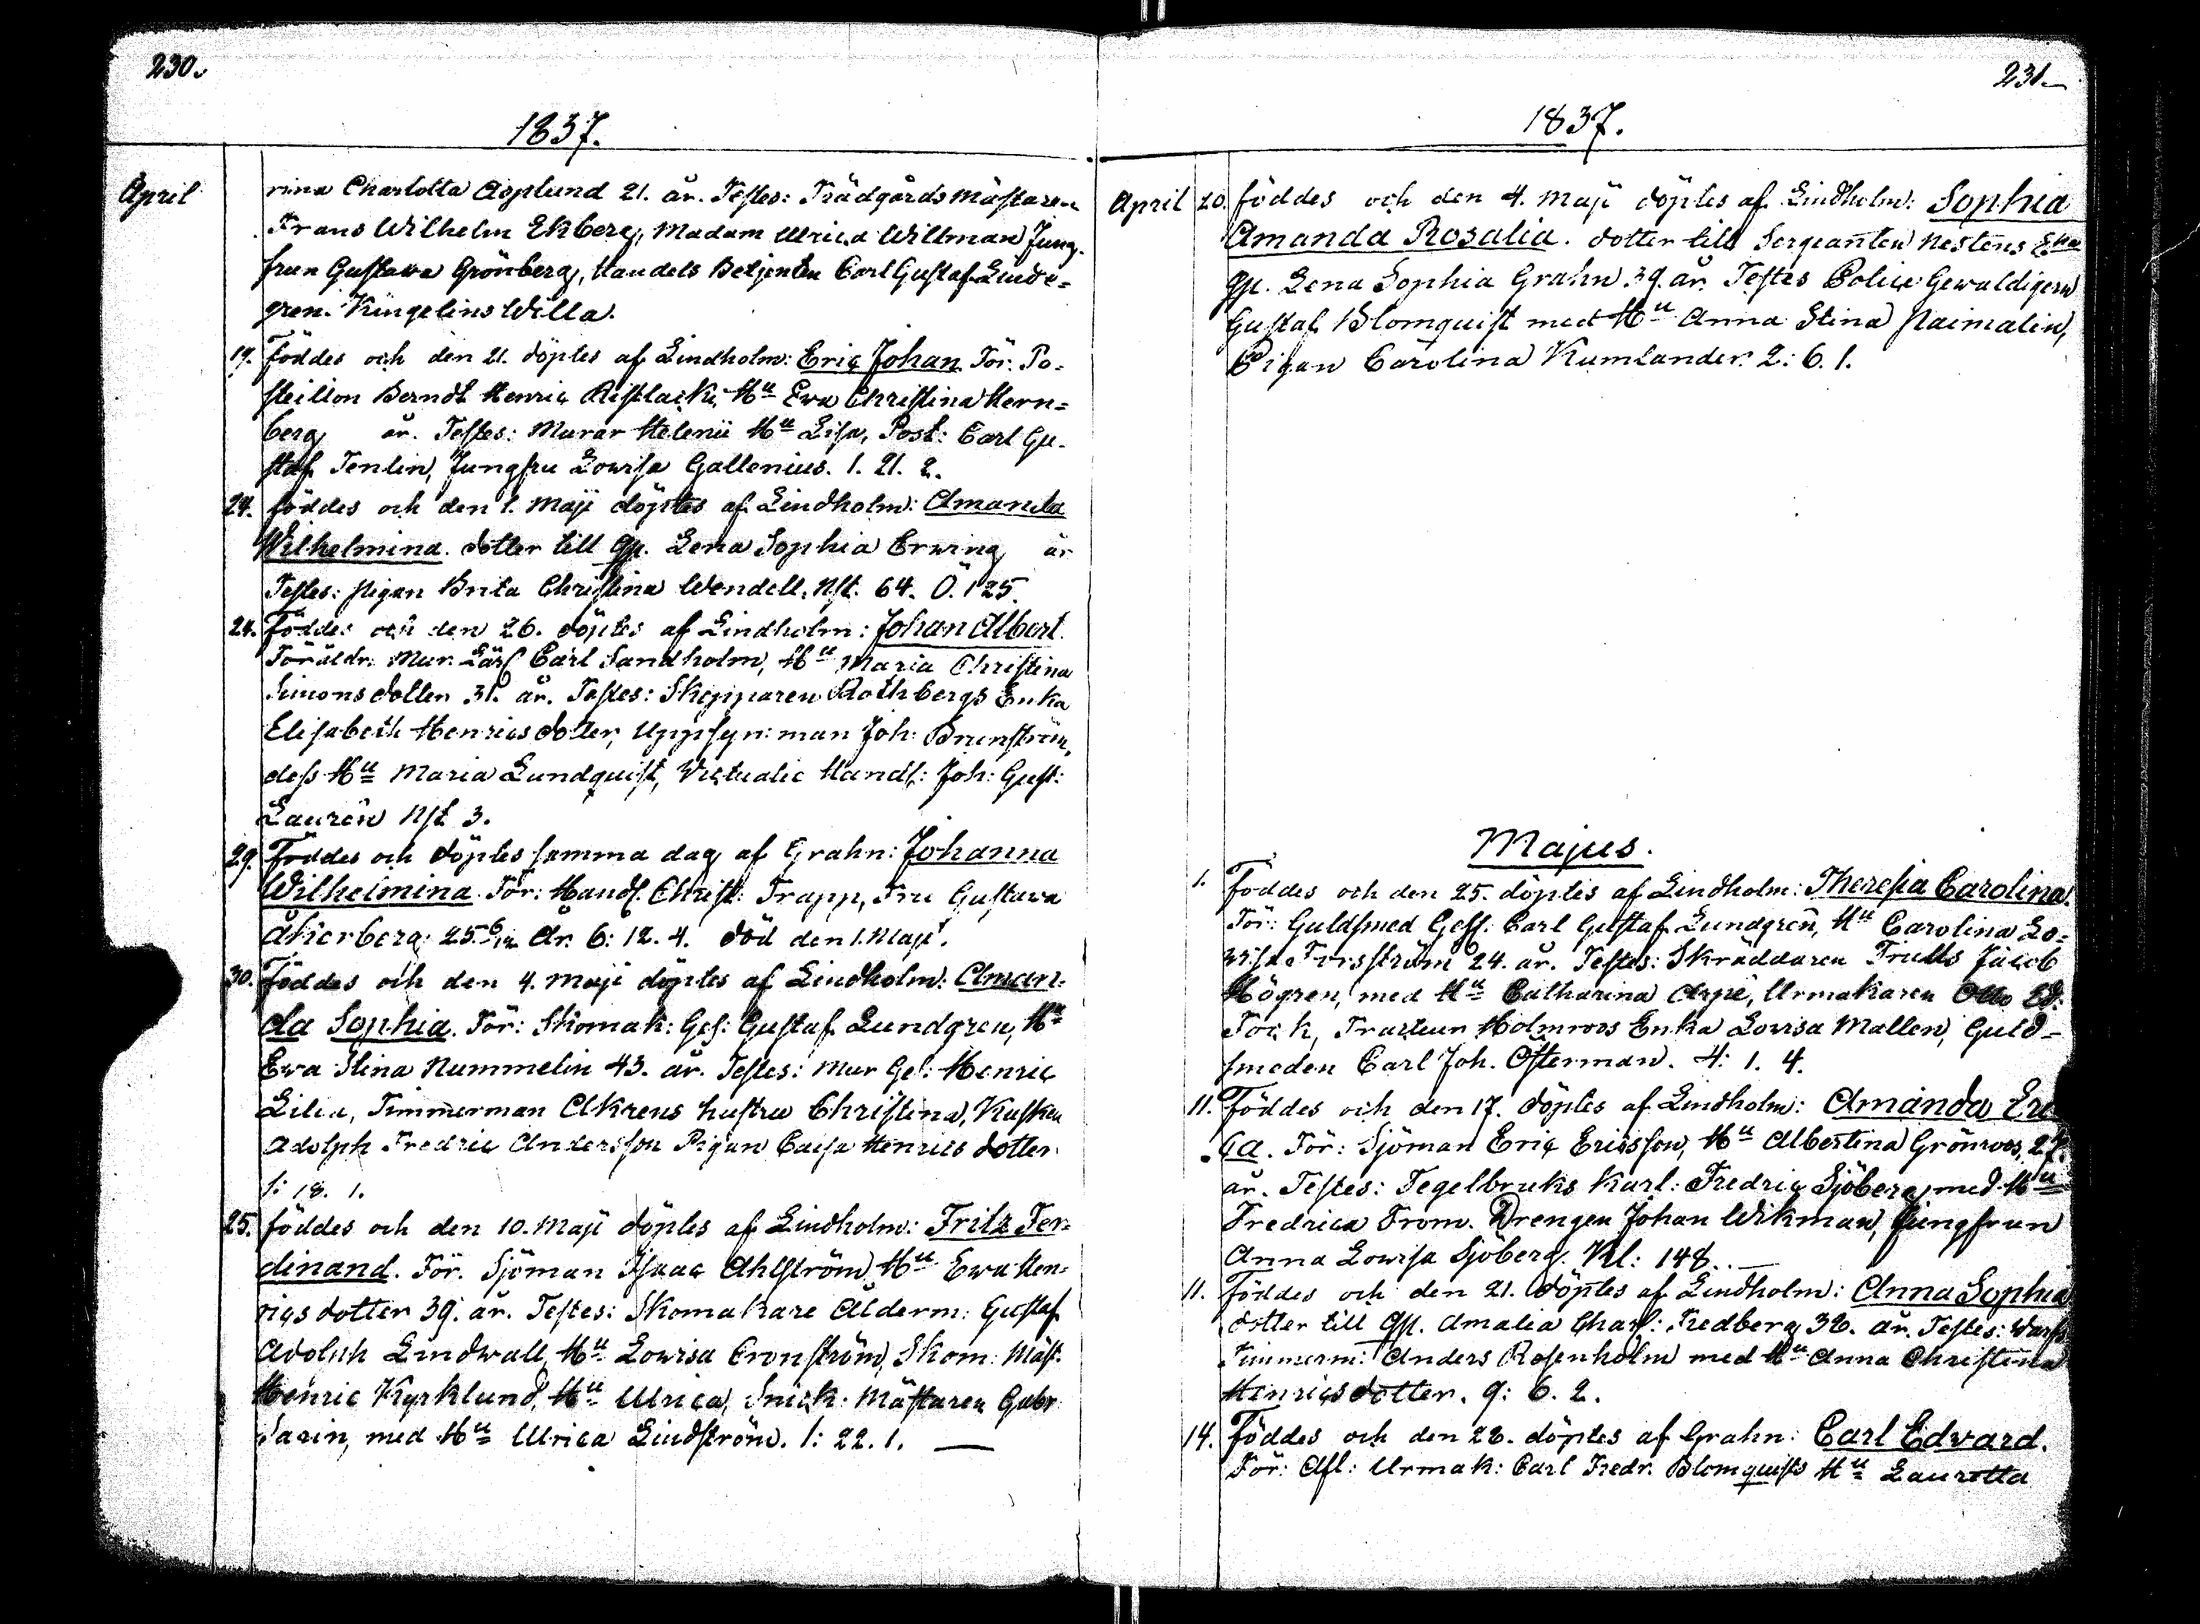 230.
1837.
April
rina Charlotta Asplund 21. år. Testes: Trädgårds Mästaren
Frans Wilhelm Ekberg, Madam Ulrica Willman Jung-
frun Gustava Grönberg, Handels Betjenten Carl Gustaf Linde=
gren. Kingelins Willa.
19. föddes och den 21. döptes af Lindholm: Eric Johan. För. Po=
stillon Berndt Henric Ristlacki Hu Eva Christina Hern=
berg år. Testes: Murar Helenii Hu Lisa, Post: Carl Gu-
staf Tenlin, Jungfru Lowisa Gallenius. 1. 21. 2.
24. föddes och den 1. Maji döptes af Lindholm: Amanda
Wilhelmina. dotter till Qp. Lena Sophia Erwing år
Testes: Pigan Brita Christina Wendell. Nst. 64. Ö. 125.
24. Föddes och den 26. döptes af Lindholm: Johan Albert.
Föräldr: Mur. Lärl Carl Sandholm, Hu Maria Christina
Simonsdotter 31. år. Testes: Skepparen Rothbergs Enka
Elisabeth Henricsdotter, Uppsyn:man Joh: Brunström,
dess Hu Maria Lundquist, Victualie Handl: Joh: Gust:
Laurén Nst 3.
29. Föddes och döptes samma dag af Grahn: Johanna
Wilhelmina. För: Handl. Christ: Trapp, Fru Gustava
Åkerberg. 25 6/12 År. 6: 12. 4. död den 1. Maji.
30. Föddes och den 4. Maji döptes af Lindholm: Aman-
da Sophia. För: Skomak: Ges: Gustaf Lundgren, Hu
Ewa Stina Nummelin 43. år. Testes: Mur Ges: Henric
Lilia, Timmerman Akrens hustru Christina, Kusken
Adolph Fredric Andersson Pigan Caisa Henrics dotter
1: 18. 1.
25. föddes och den 10. Maji döptes af Lindholm: Fritz Fer=
dinand. För. Sjöman Isaac Ahlström Hu Ewa Hen=
rics dotter 39. år. Testes: Skomakare Ålderm: Gustaf
Adolph Lindwall, Hu Lowisa Cronström, Skom: Mäst:
Henric Kyrklund, Hu Ulrica, Snick: Mästaren Gabr
Sasin, med Hu Ulrica Lindström. 1: 22. 1. —
231.
1837.
April 20. föddes och den 4. Maji döptes af Lindholm: Sophia
Amanda Rosalia. dotter till Sergeanten Nestens Eka
Qp. Lena Sophia Grahn 39. år. Testes Police Gewaldigern
Gustaf Blomquist med Hu Anna Stina Paimalin,
Pigan Carolina Kumlander. 2: 6. 1.
Majus.
1. Föddes och den 25. döptes af Lindholm: Theresia Carolina.
För: Guldsmed Gess: Carl Gustaf Lundgren, Hu Carolina Lo=
wisa Forsström 24. år. Testes: Skräddaren Truls Jacob
Högren, med Hu Catharina Arpe, Urmakaren Otto Ed:
Fock, Tracteur Holmroos Enka Lowisa Mallen, Guld=
smeden Carl Joh. Österman. 4: 1. 4.
11. Föddes och den 17. döptes af Lindholm: Amanda Eri
ca. För: Sjöman Eric Ericsson, Hu Albertina Grönroos, 27.
år. Testes: Tegelbruks Karl: Fredric Sjöberg med Hu
Fredrica From. Drengen Johan Wikman, Jungfrun
Anna Lowisa Sjöberg. Kl: 148. —
11. Föddes och den 21. döptes af Lindholm: Anna Sophia
dotter till Qp. Amalia Charl: Fredberg 32. år. Testes: Warfs
Timmerm: Anders Rosenholm med Hu Anna Christina
Henricsdotter. 9: 6. 2.
14. Föddes och den 28. döptes af Grahn: Carl Edvard.
För: Afl: Urmak: Carl Fredr. Blomquists Hu Lauretta